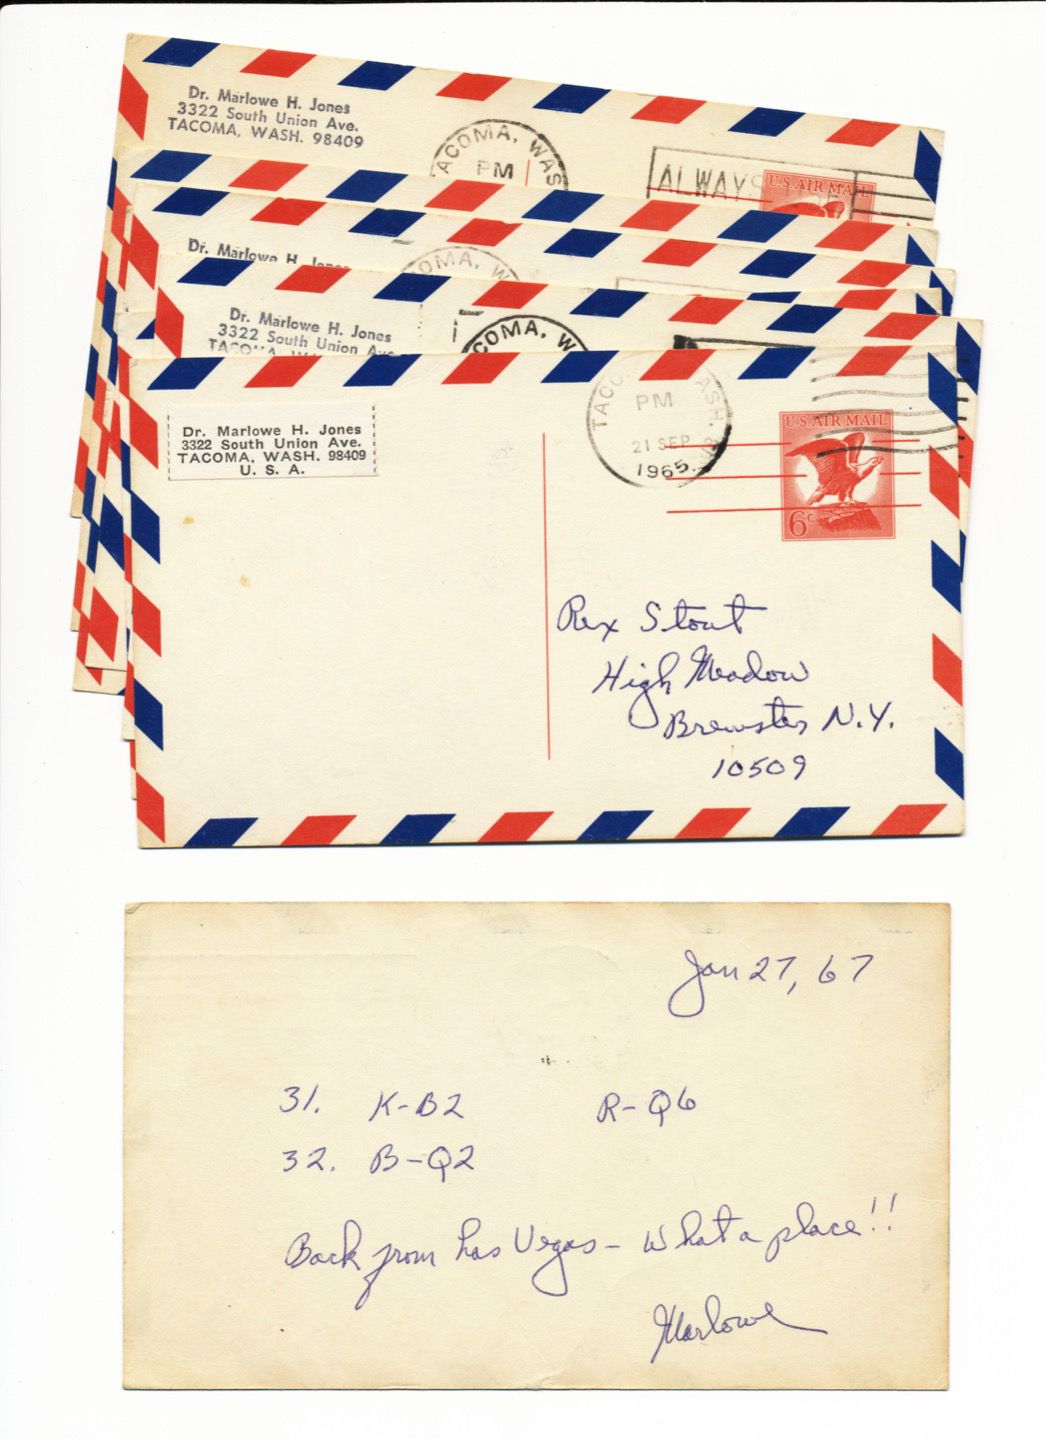 Dr. Marlowe H. Jones
3322 South Union Ave.
TACOMA, WASH. 98409
TACOMA, WAS
PM
ALWAY
U.S. AIR MAIL
Dr. Marlowe H. Jones
OMA, W
Dr. Marlowe H. Jones
3322 South Union Ave.
TACOMA, WA
COMA, W
Dr. Marlowe H. Jones
3322 South Union Ave.
TACOMA, WASH. 98409
U. S. A.
TACO ASH.
PM
21 SEP
1965
U.S. AIR MAIL
6c
Rex Stout
High Meadow
Brewster N.Y.
10509
Jan 27, 67
31. K-B2 R-Q6
32. B-Q2
Back from Las Vegas - What a place!!
Marlowe